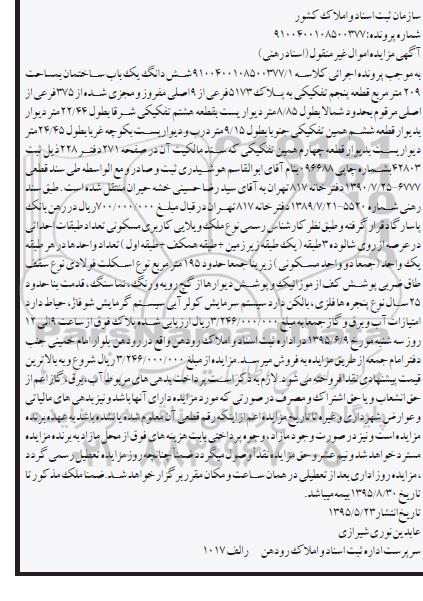 سازمان ثبت اسناد و املاک کشور
شماره پرونده: ۹۱۰۰۴۰۰۱۰۸۵۰۰۳۷۷
آگهی مزایده اموال غیر منقول (اسناد رهنی)
به موجب پرونده اجرائی کلاسه ۹۱۰۰۴۰۰۱۰۸۵۰۰۳۷۷/۱ شش دانگ یک باب ساختمان بمساحت
۲۰۹ متر مربع قطعه پنجم تفکیکی به پلاک ۵۱۷۳ فرعی از ۹ اصلی مفروز و مجزی شده از ۳۷۵ فرعی از
اصلی مرقوم بحدود شمالا بطول ۸/۸۵ متر دیوار یست بقطعه هشتم تفکیکی شرقا بطول ۲۲/۴۴ متر دیوار
بدیوار قطعه ششم همین تفکیکی جنوبا بطول ۹/۱۵ متر درب و دیواریست بکوچه غربا بطول ۲۴/۴۵ متر
دیواریست بدیوار قطعه چهارم همین تفکیکی که سند مالکیت آن در صفحه ۲۷۱ دفتر ۲۲۸ ذیل ثبت
۴۲۸۰۳ بشماره چاپی ۰۹۶۶۸۸ بنام آقای ابوالقاسم هوشیدری ثبت و صادر و مع الواسطه طی سند قطعی
۶۷۷۷-۱۳۹۰/۷/۲۵ دفتر خانه ۸۱۷ تهران به آقای سید رضا حسینی خشه حیران منتقل شده است. طبق سند
رهنی شماره ۵۵۲۰-۱۳۸۹/۷/۲۱ دفتر خانه ۸۱۷ تهران در قبال مبلغ ۷۰۰/۰۰۰/۰۰۰ ریال در رهن بانک
پاسارگاد قرار گرفته و طبق نظر کارشناس رسمی نوع ملک ویلایی کاربری مسکونی تعداد طبقات احداثی
در عرصه از روی شالوده ۳ طبقه (یک طبقه زیر زمین + طبقه همکف + طبقه اول) تعداد واحدها در هر طبقه
یک واحد (جمعا دو واحد مسکونی) زیر بنا جمعا حدود ۱۹۵ متر مربع نوع اسکلت فولادی نوع سقف
طاق ضربی پوشش کف از موزائیک و پوشش دیوارها از گچ رویه و رنگ، نما سنگ، قدمت بنا حدود
۲۵ سال نوع پنجره ها فلزی، بالکن دارد سیستم سرمایش کولر آبی سیستم گرمایش شوفاژ، حیاط دارد
امتیازات آب و برق و گاز جمعا به مبلغ ۳/۲۴۶/۰۰۰/۰۰۰ ریال ارزیابی شده پلاک فوق از ساعت ۹ الی ۱۲
روز سه شنبه مورخ ۱۳۹۵/۶/۹ در اداره ثبت اسناد و املاک رودهن واقع در رودهن بلوار امام خمینی جنب
دفتر امام جمعه از طریق مزایده به فروش میرسد. مزایده از مبلغ ۳/۲۴۶/۰۰۰/۰۰۰ ریال شروع و به بالاترین
قیمت پیشنهادی نقدا فروخته می شود. لازم به ذکر است پرداخت بدهی های مربوط آب، برق، گاز اعم از
حق انشعاب و یا حق اشتراک و مصرف در صورتی که مورد مزایده دارای آنها باشد و نیز بدهی های مالیاتی
و عوارض شهرداری و غیره تا تاریخ مزایده اعم از اینکه رقم قطعی آن معلوم شده یا نشده باشد به عهده برنده
مزایده است و نیز در صورت وجود مازاد، وجوه پرداختی بابت هزینه های فوق از محل مازاد به برنده مزایده
مسترد خواهد شد و نیم عشر و حق مزایده نقدا وصول میگردد ضمنا چنانچه روز مزایده تعطیل رسمی گردد
، مزایده روز اداری بعد از تعطیلی در همان ساعت و مکان مقرر برگزار خواهد شد. ضمنا ملک مذکور تا
تاریخ ۱۳۹۵/۸/۳۰ بیمه میباشد.
تاریخ انتشار ۱۳۹۵/۵/۲۳
عابدین نوری شیرازی
سرپرست اداره ثبت اسناد و املاک رودهن رالف ۱۰۱۷